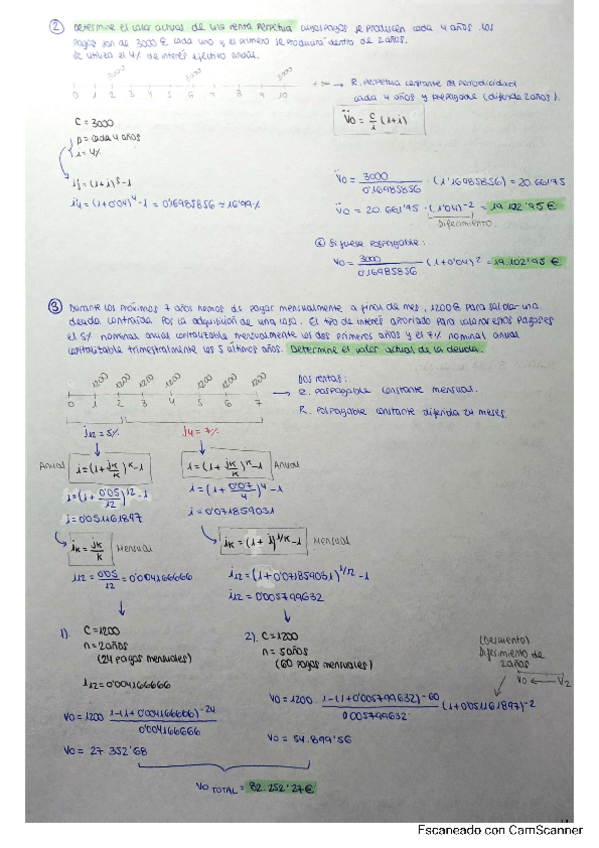 ② Determine el valor actual de una renta perpetua cuyos pagos se producen cada 4 años. Los
pagos son de 3000 € cada uno y el primero se producirá dentro de 2 años.
Se utiliza el 4% de interés efectivo anual.
3000 3000 3000
0 1 2 3 4 5 6 7 8 9 10 +∞
→ R. Perpetua constante de periodicidad
cada 4 años y prepagable (diferida 2 años).
C = 3000
p = cada 4 años
i = 4%
V̈0 = C/i (1+i)
i4 = (1+0'04)^4 - 1 = 0'16985856 ≈ 16'99%
V̈0 = 3000/0'16985856 · (1'16985856) = 20.661'75
V̈0 = 20.661'75 · (1'04)^-2 = 19.102'95 €
Diferimiento.
Si fuese pospagable:
V0 = 3000/0'16985856 (1+0'04)^2 = 19.102'95 €
③ Durante los próximos 7 años hemos de pagar mensualmente a final de mes, 1200€ para saldar una
deuda contraída por la adquisición de una casa. El tipo de interés apropiado para valorar estos pagos es
el 5% nominal anual contabilizable mensualmente los dos primeros años y el 7% nominal anual
contabilizable trimestralmente los 5 últimos años. Determine el valor actual de la deuda.
1200 1200 1200 1200 1200 1200 1200
0 1 2 3 4 5 6 7
Dos rentas:
→ R. Pospagable constante mensual.
R. Pospagable constante diferida 24 meses.
j12 = 5% j4 = 7%
Anual i = (1 + jk/k)^k - 1 i = (1 + jk/k)^k - 1 Anual
i = (1 + 0'05/12)^12 - 1 i = (1 + 0'07/4)^4 - 1
i = 0'051161897 i = 0'071859031
ik = jk/k Mensual ik = (1 + i)^1/k - 1 Mensual
i12 = 0'05/12 = 0'004166666 i12 = (1 + 0'071859031)^1/12 - 1
i12 = 0'005799632
1). C = 1200 2). C = 1200
n = 2 años n = 5 años
(24 pagos mensuales) (60 pagos mensuales)
i12 = 0'004166666
(Descuento)
Diferimiento de
2 años
V0 ← V2
V0 = 1200 1-(1+0'004166666)^-24/0'004166666
V0 = 1200 · 1-(1+0'005799632)^-60/0'005799632 (1+0'051161897)^-2
V0 = 27 352'68 V0 = 54.899'56
V0 TOTAL = 82.252'27€
Escaneado con CamScanner